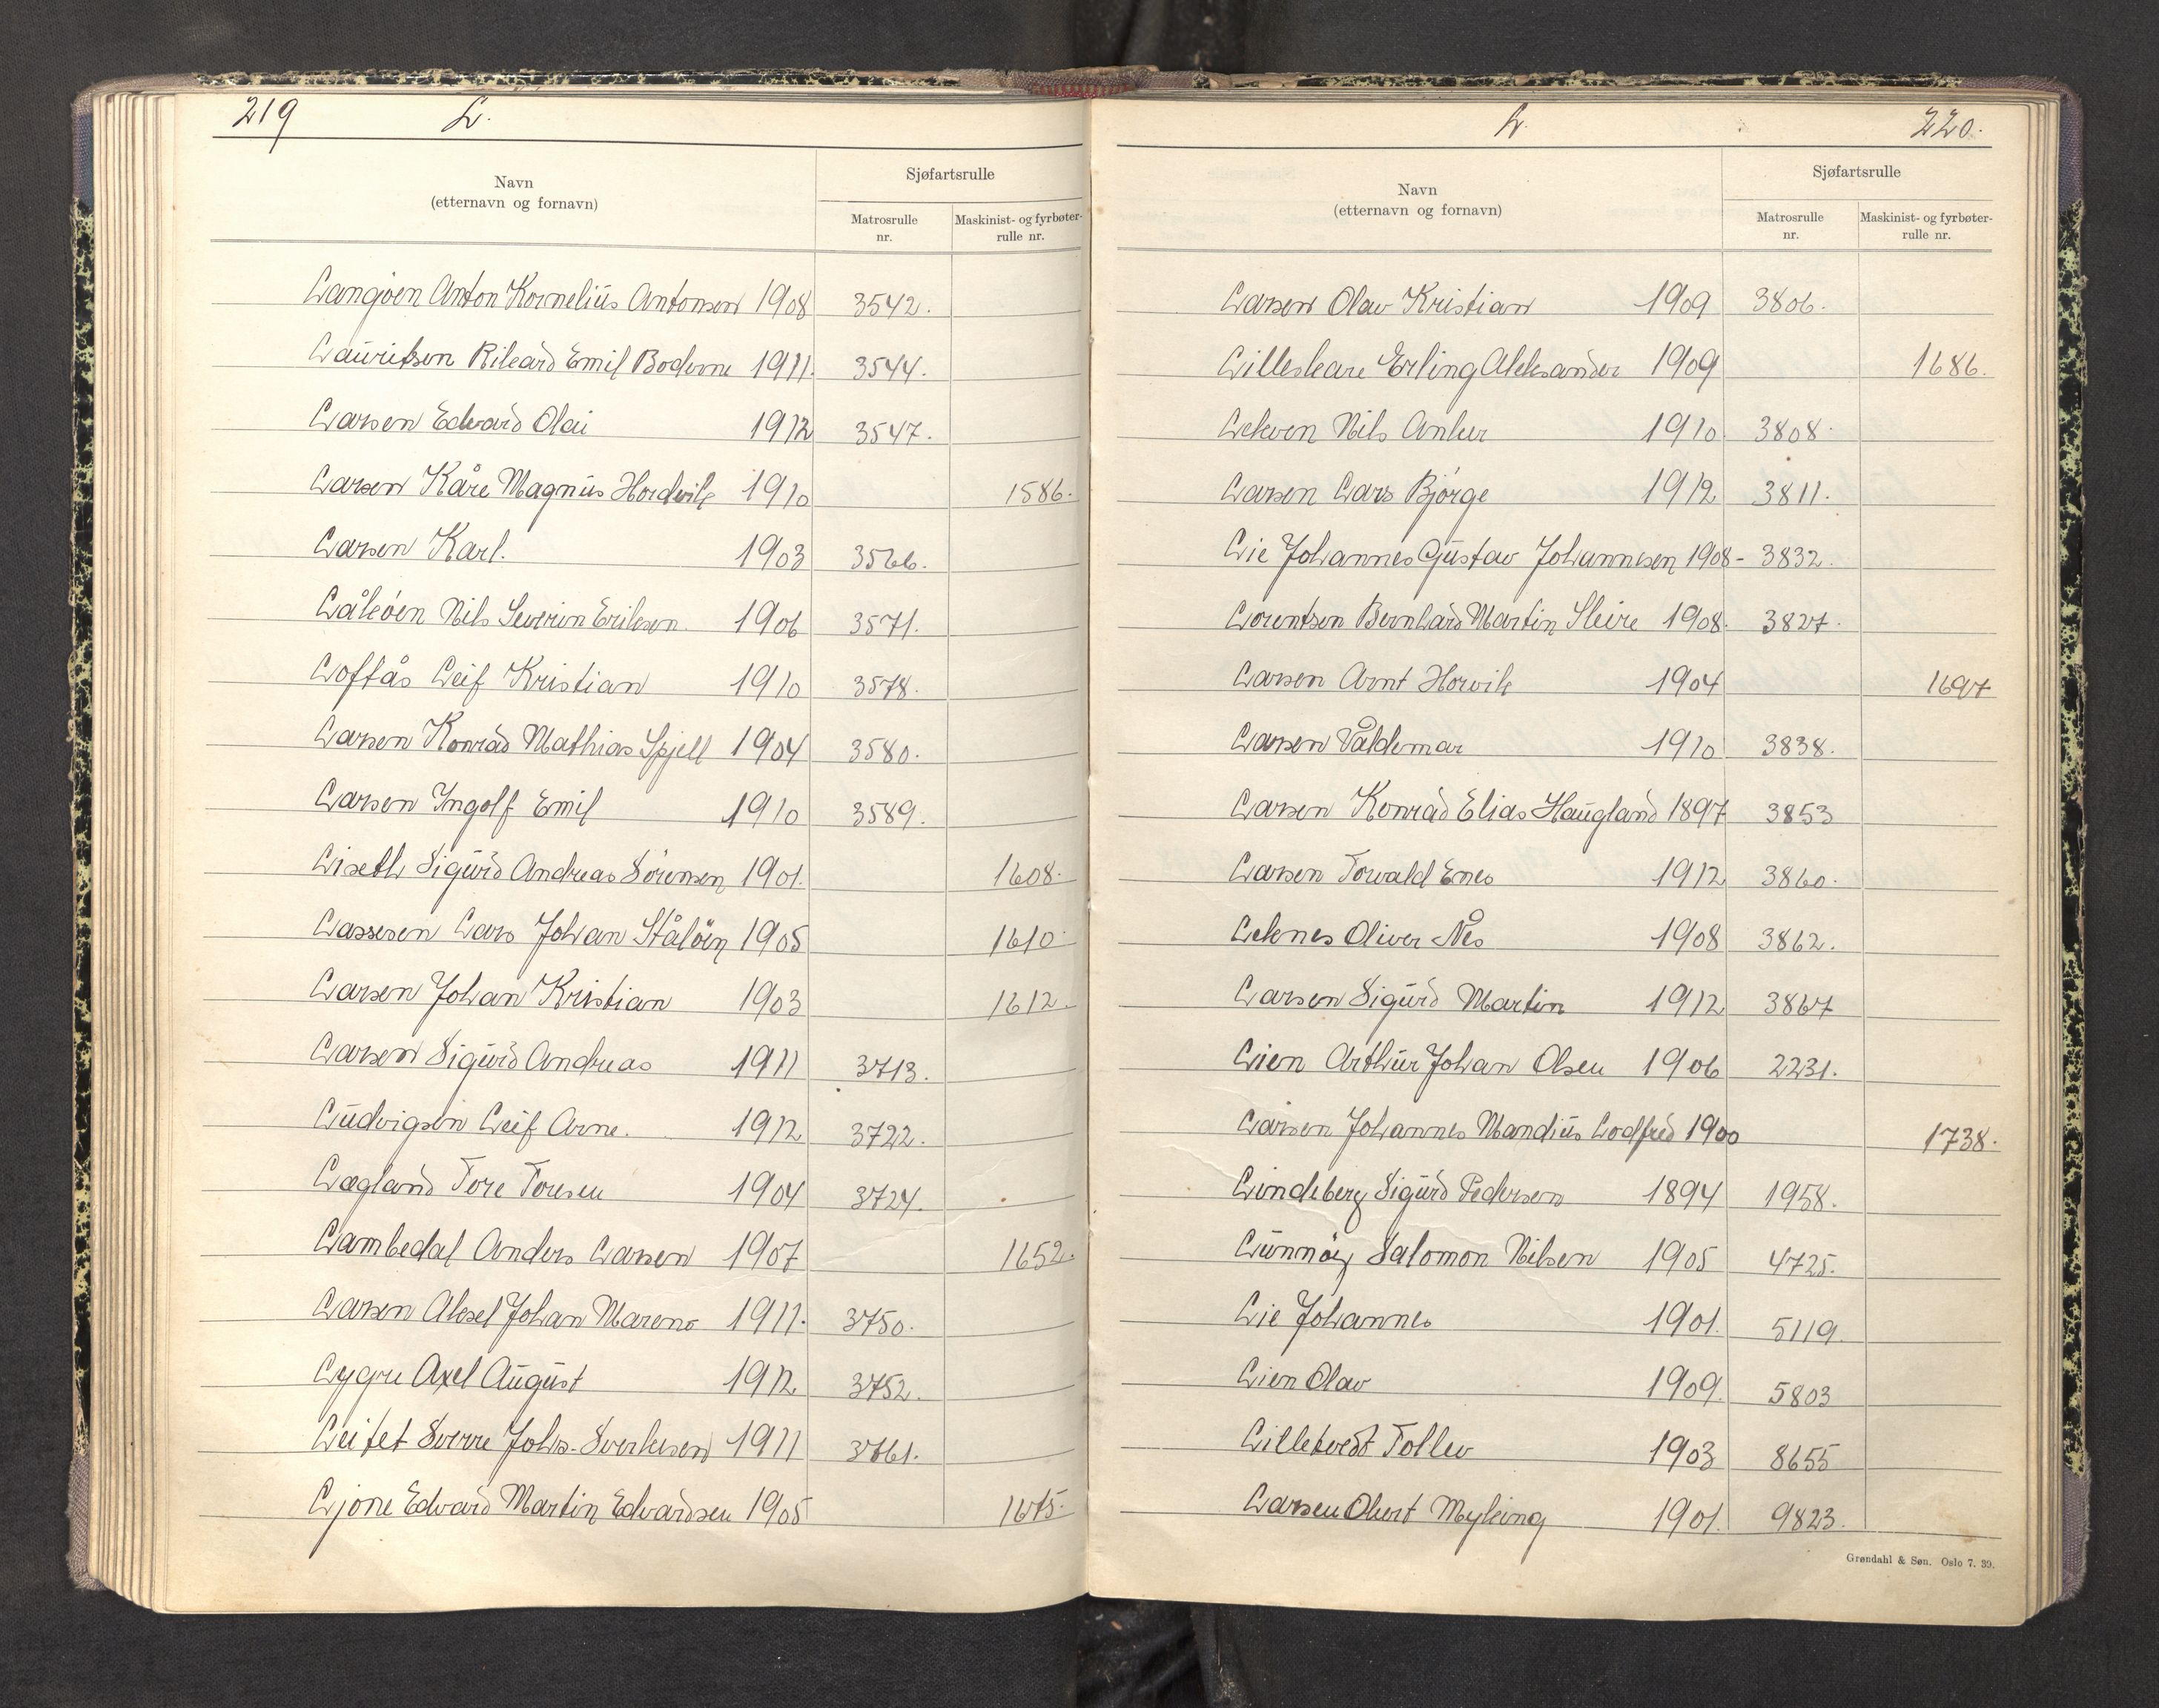 219 L.
Sjøfartsrulle
Navn
(etternavn og fornavn)
Matrosrulle nr.
Maskinist- og fyrbøter-rulle nr.
Langøen Anton Kornelius Antonsen 1908 3542.
Lauritsen Rikard Emil Bodvine 1911. 3544.
Larsen Edvard Olai 1912 3547.
Larsen Kåre Magnus Hordvik 1910 1586.
Larsen Karl. 1903 3566.
Låkøen Nils Severin Eriksen. 1906 3571.
Loftås Leif Kristian 1910 3578.
Larsen Konrad Mathias Spjell 1904 3580.
Larsen Ingolf Emil 1910 3589.
Liseth Sigurd Andreas Sörensen 1901. 1608.
Lassesen Lars Johan Ståløen 1905 1610.
Larsen Johan Kristian 1903 1612
Larsen Sigurd Andreas 1911 3713.
Ludvigsen Leif Arne. 1912 3722.
Lægland Tore Toresen 1904 3724.
Lambedal Anders Larsen 1907 1652.
Larsen Aksel Johan Marens 1911. 3750.
Lygre Axel August 1912 3752.
Leitet Sverre Johs. Sverkesen 1911 3761.
Ljone Edvard Martin Edvardsen 1905 1675.
L. 220.
Sjøfartsrulle
Navn
(etternavn og fornavn)
Matrosrulle nr.
Maskinist- og fyrbøter-rulle nr.
Larsen Olav Kristian 1909 3806.
Lilleskare Erling Aleksander 1909 1686.
Lekven Nils Anker 1910 3808.
Larsen Lars Bjørge 1912 3811.
Lie Johannes Gustav Johannesen 1908- 3832.
Lorentsen Bernhard Martin Sleire 1908. 3827.
Larsen Arnt Horvik 1904 1697
Larsen Valdemar 1910 3838.
Larsen Konrad Elias Haugland 1897 3853
Larsen Torvald Enes 1912 3860.
Leknes Oliver Nes 1908 3862.
Larsen Sigurd Martin 1912 3867
Lien Arthur Johan Olsen 1906 2231.
Larsen Johannes Mandius Lodfred 1900 1738.
Lindeberg Sigurd Pedersen 1894 1958.
Lunnøy Salomon Nilsen 1905 4725.
Lie Johannes 1901. 5119.
Lien Olav 1909. 5803
Lilletvedt Tollev 1903 8655
Larsen Obert Myking 1901. 9823.
Grøndahl & Søn. Oslo 7. 39.